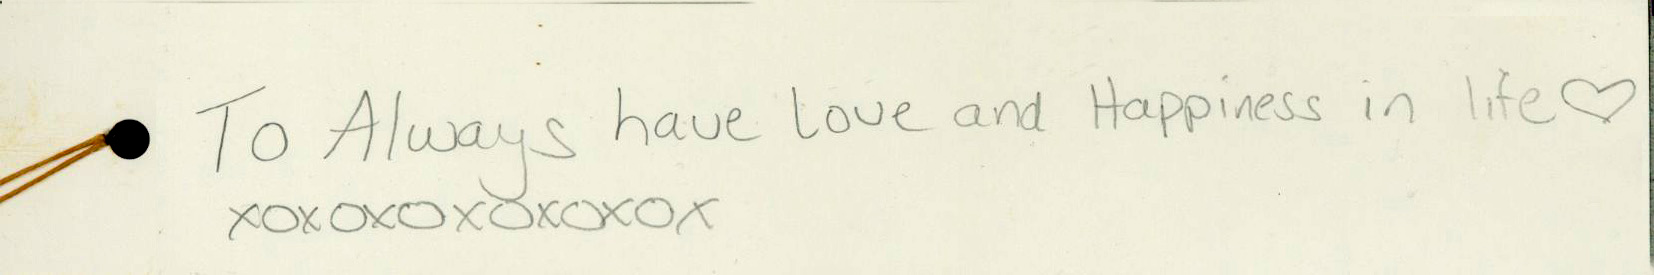 To Always have love and Happiness in life♡
xoxoxoxoxoxox